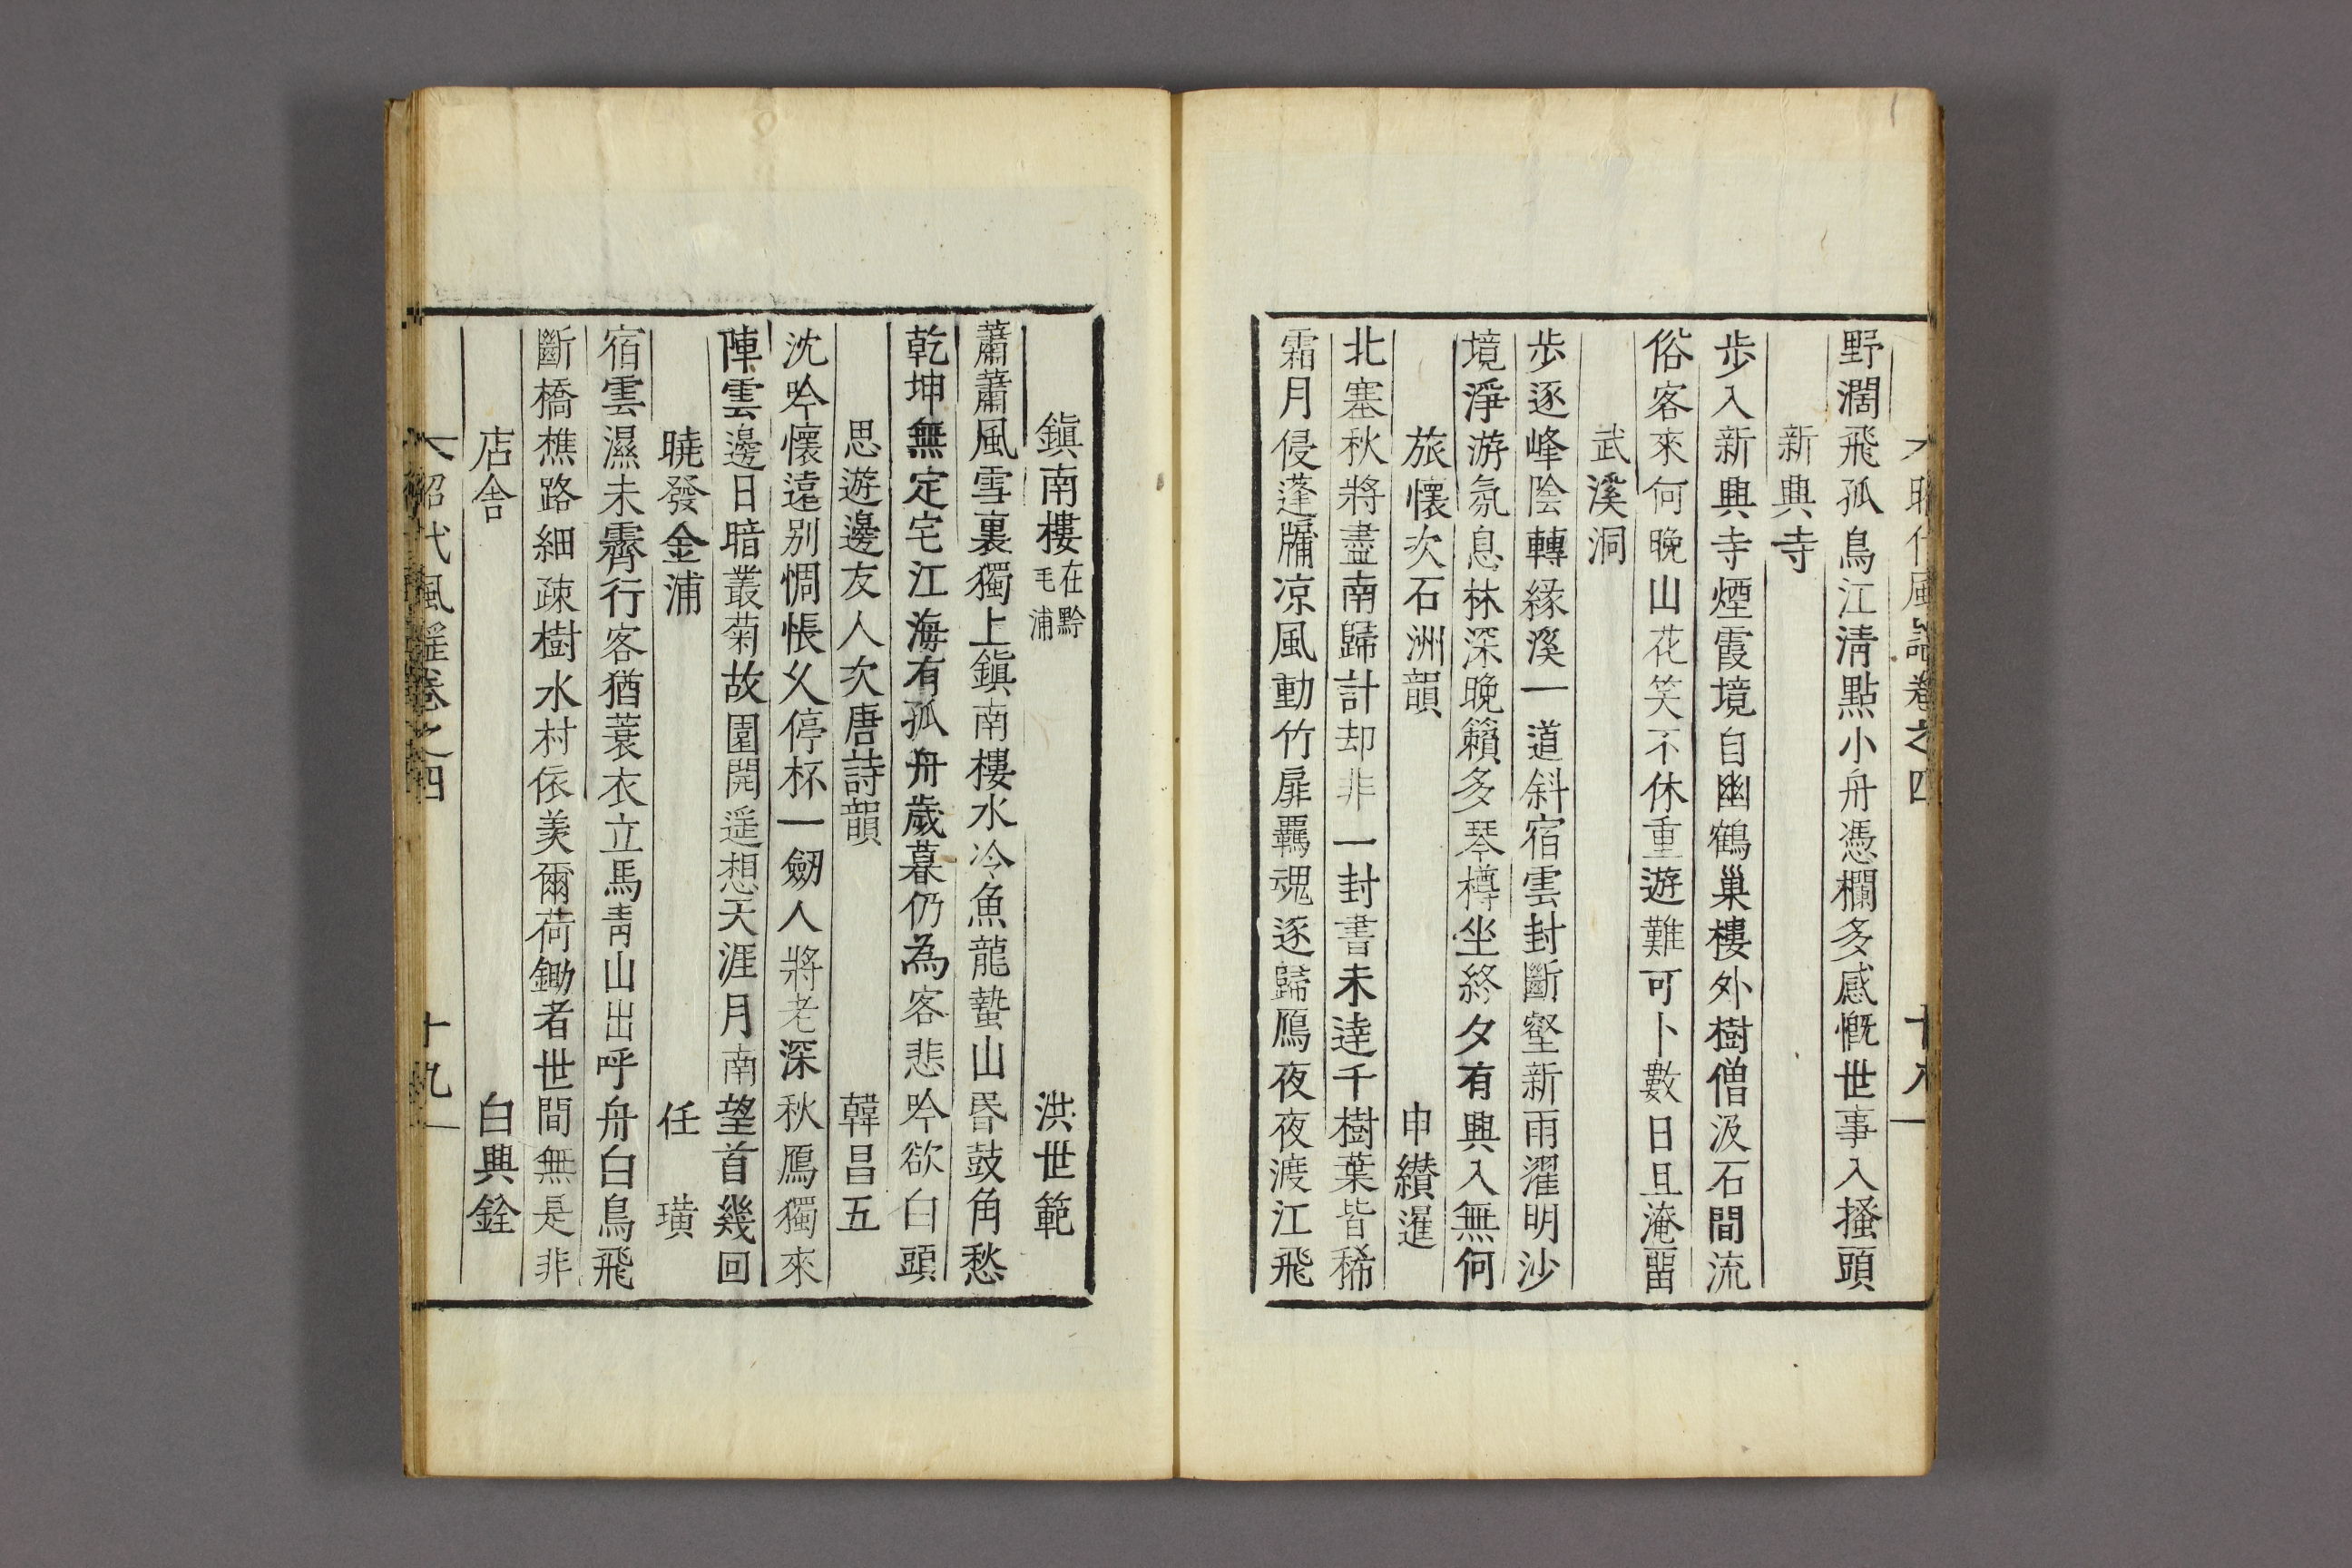 昭代風謠卷之四
十八
野濶飛孤鳥江淸點小舟憑欄多感慨世事入搔頭
新興寺
步入新興寺煙霞境自幽鶴巢樓外樹僧汲石間流
俗客來何晩山花笑不休重遊難可卜數日且淹畱
武溪洞
步逐峰陰轉緣溪一道斜宿雲封斷壑新雨濯明沙
境淨游氛息林深晩籟多琴樽坐終夕有興入無何
旅懷次石洲韻
申纉暹
北塞秋將盡南歸計却非一封書未達千樹葉皆稀
霜月侵蓬牖凉風動竹扉羈魂逐歸鴈夜夜渡江飛
鎭南樓在黔毛浦
洪世範
蕭蕭風雪裏獨上鎭南樓水冷魚龍蟄山昏鼓角愁
乾坤無定宅江海有孤舟歲暮仍為客悲吟欲白頭
思遊邊友人次唐詩韻
韓昌五
沈吟懷遠別惆悵久停杯一劒人將老深秋鴈獨來
陣雲邊日暗叢菊故園開遥想天涯月南望首幾回
曉發金浦
任璜
宿雲濕未霽行客猶蓑衣立馬靑山出呼舟白鳥飛
斷橋樵路細疎樹水村依羨爾荷鋤者世間無是非
店舍
白興銓
昭代風謠卷之四
十九